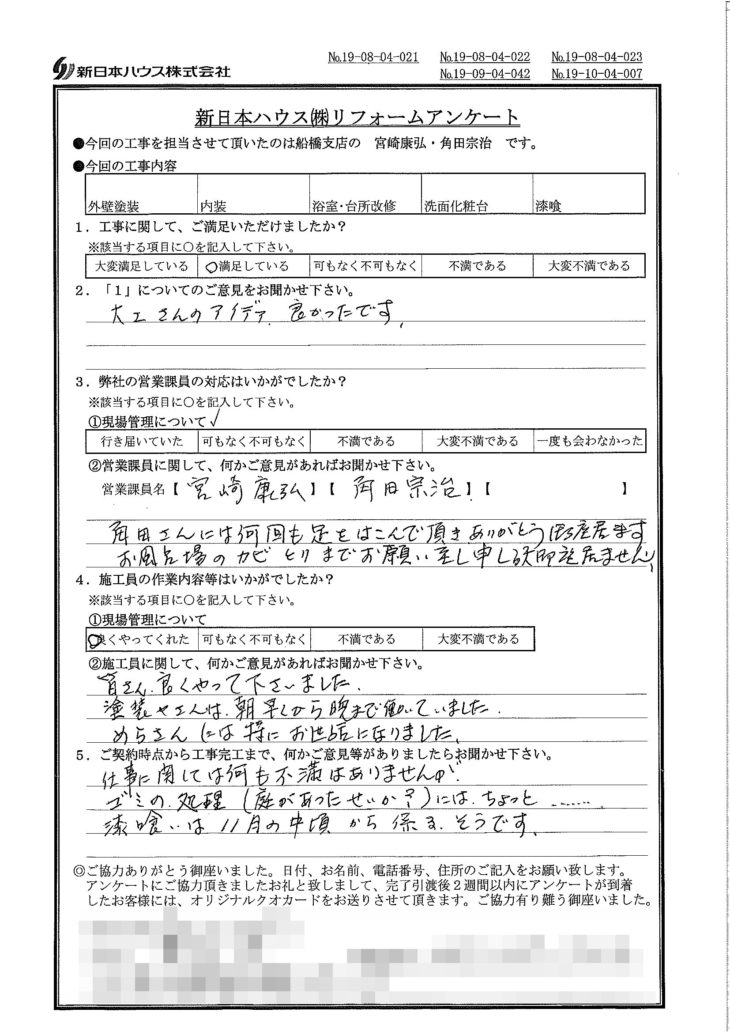 新日本ハウス株式会社
No.19-08-04-021 No.19-08-04-022 No.19-08-04-023
No.19-09-04-042 No.19-10-04-007
新日本ハウス㈱リフォームアンケート
●今回の工事を担当させて頂いたのは船橋支店の 宮崎康弘・角田宗治 です。
●今回の工事内容
外壁塗装 内装 浴室・台所改修 洗面化粧台 漆喰
1．工事に関して、ご満足いただけましたか？
※該当する項目に○を記入して下さい。
大変満足している ○満足している 可もなく不可もなく 不満である 大変不満である
2．「1」についてのご意見をお聞かせ下さい。
大工さんのアイデア、良かったです。
3．弊社の営業課員の対応はいかがでしたか？
※該当する項目に○を記入して下さい。
①現場管理について✓
行き届いていた 可もなく不可もなく 不満である 大変不満である 一度も会わなかった
②営業課員に関して、何かご意見があればお聞かせ下さい。
営業課員名【 宮崎康弘 】【 角田宗治 】【 】
角田さんには何回も足をはこんで頂きありがとう御座居ます
お風呂場のカビとりまでお願い致し申し訳御座居ません
4．施工員の作業内容等はいかがでしたか？
※該当する項目に○を記入して下さい。
①現場管理について
良くやってくれた 可もなく不可もなく 不満である 大変不満である
②施工員に関して、何かご意見があればお聞かせ下さい。
皆さん、良くやって下さいました。
塗装やさんは、朝早くから晩まで働いていました。
めらさんには特にお世話になりました。
5．ご契約時点から工事完工まで、何かご意見等がありましたらお聞かせ下さい。
仕事に関しては何も不満はありませんが、
ゴミの処理（庭があったせいか？）には、ちょっと………
漆喰いは11月の中頃から係る、そうです。
◎ご協力ありがとう御座いました。日付、お名前、電話番号、住所のご記入をお願い致します。
アンケートにご協力頂きましたお礼と致しまして、完了引渡後2週間以内にアンケートが到着
したお客様には、オリジナルクオカードをお送りさせて頂きます。ご協力有り難う御座いました。